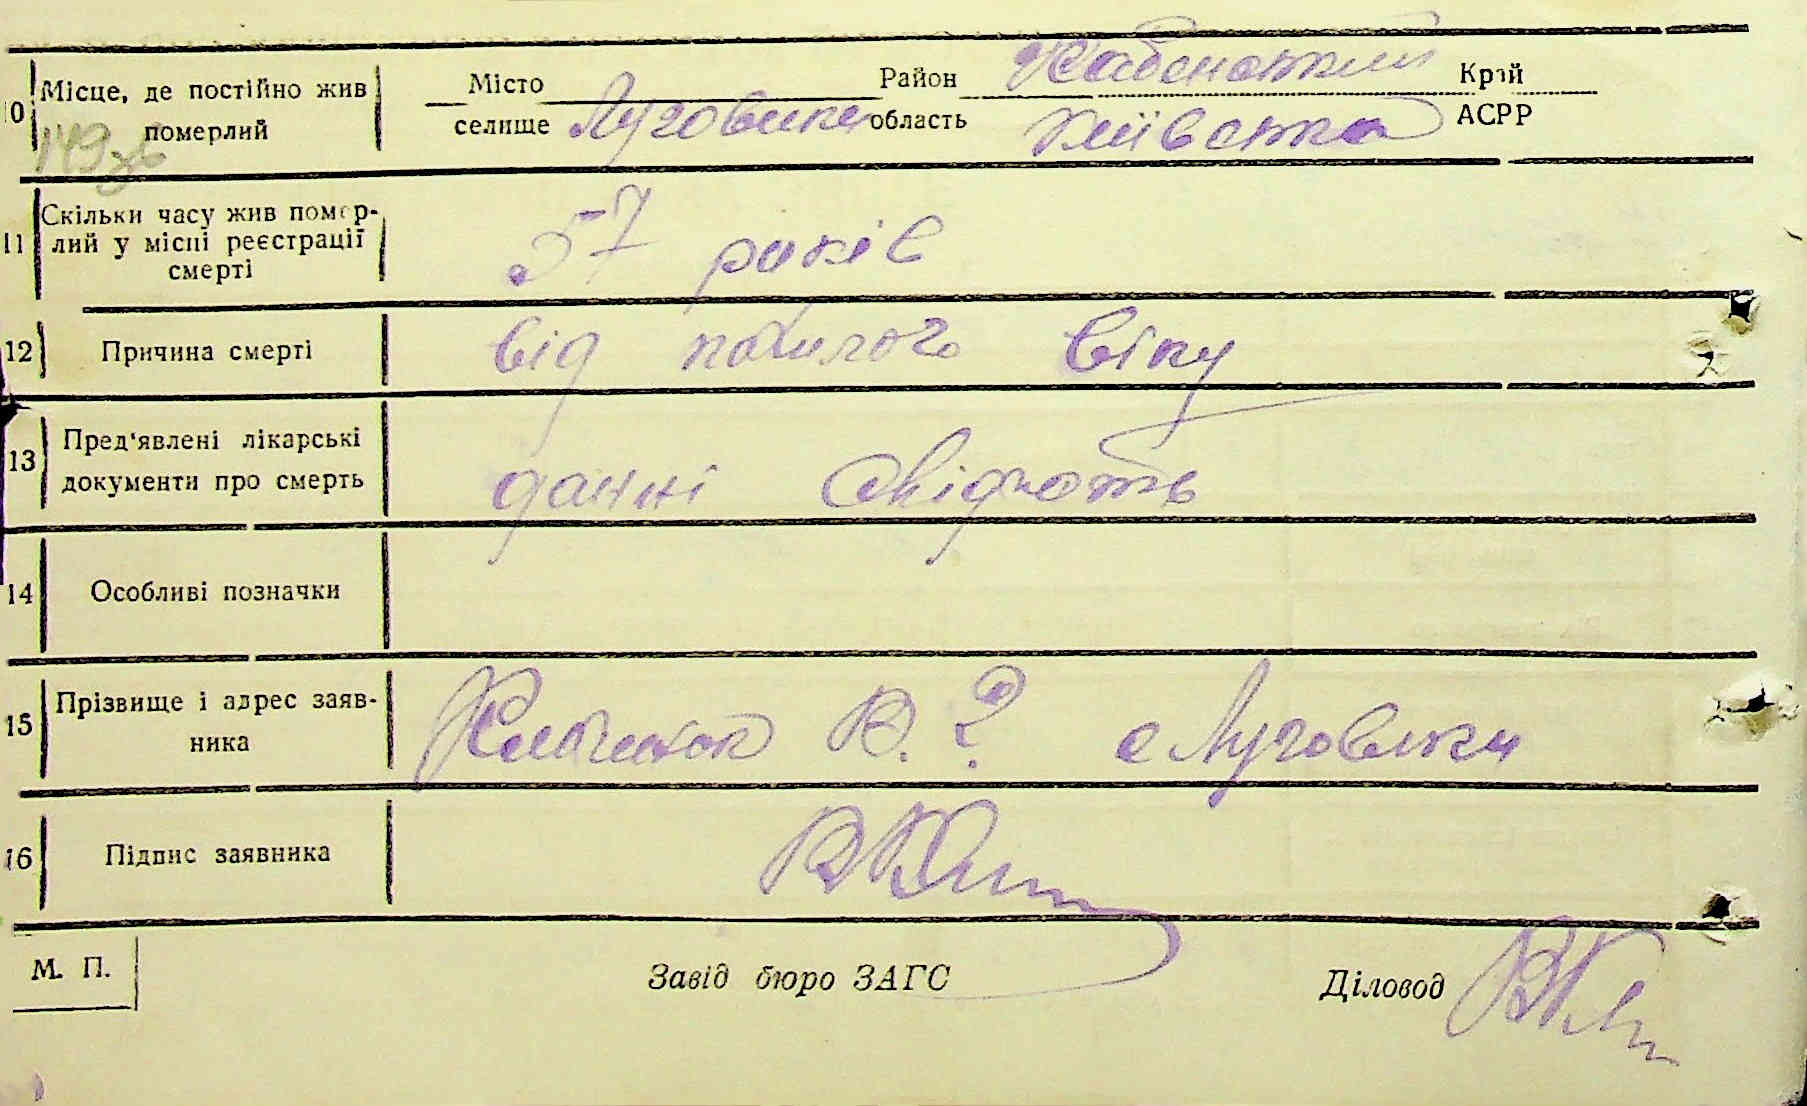 10 Місце, де постійно жив померлий
149 зв
Місто
селище Луговики
Район
область Київська
Край
АСРР
11 Скільки часу жив помер-
лий у місці реєстрації
смерті
57 років
12 Причина смерті від похилого віку
13 Пред'явлені лікарські
документи про смерть
данні свідчать
14 Особливі позначки
15 Прізвище і адрес заяв-
ника
В. ? с Луговики
16 Підпис заявника
М. П.
Завід бюро ЗАГС
Діловод